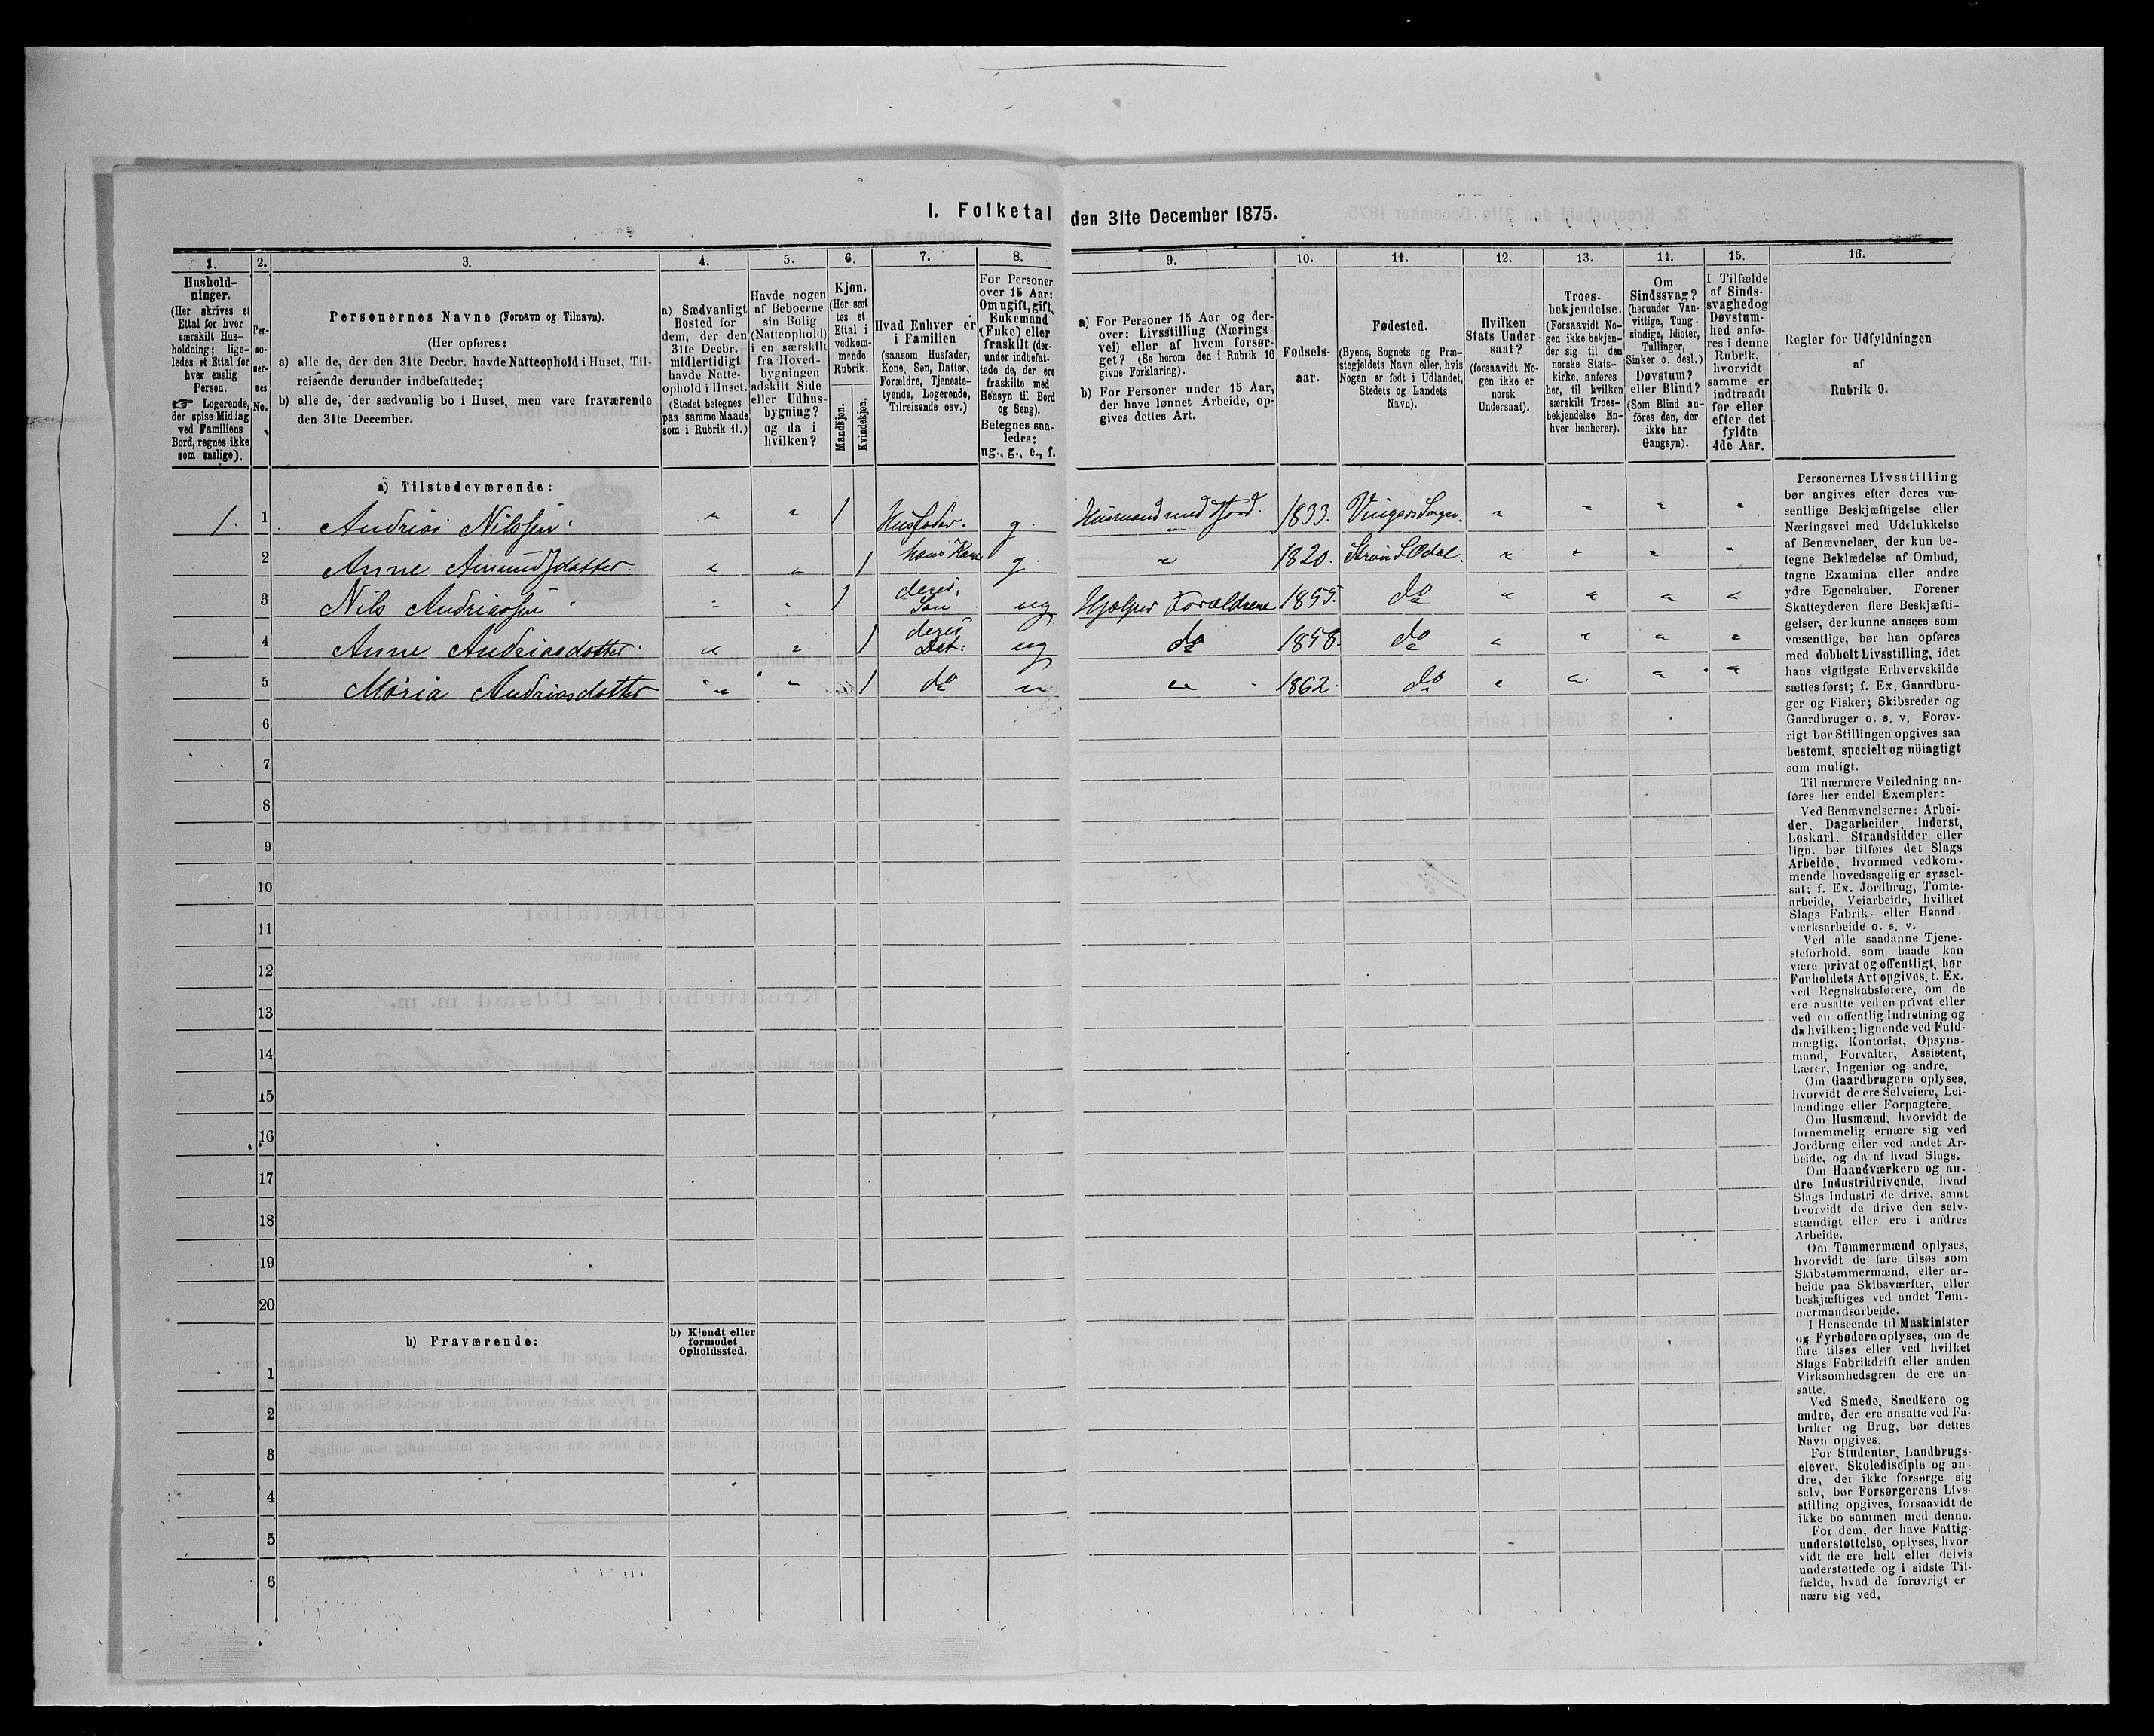 I. Folketal den 31te December 1875.
1.
Hushold-
ninger.
(Her skrives et
Ettal for hver
særskilt Hus-
holdning; lige-
ledes et Ettal for
hver enslig
Person.
☞ Logerende,
der spise Middag
ved Familiens
Bord, regnes ikke
som enslige).
2.
Per-
so-
ner-
nes
No.
3.
Personernes Navne (Fornavn og Tilnavn).
(Her opføres:
a) alle de, der den 31te Decbr. havde Natteophold i Huset, Til-
reisende derunder indbefattede;
b) alle de, der sædvanlig bo i Huset, men vare fraværende
den 31te December.
4.
a) Sædvanligt
Bosted for
dem, der den
31te Decbr.
midlertidigt
havde Natte-
ophold i Huset.
(Stedet betegnes
paa samme Maade
som i Rubrik 11.)
5.
Havde nogen
af Beboerne
sin Bolig
(Natteophold)
i en særskilt
fra Hoved-
bygningen
adskilt Side
eller Udhus-
bygning?
og da i
hvilken?
6.
Kjøn.
(Her sæt
tes et
Ettal i
vedkom-
mende
Rubrik.
Mandkjøn.
Kvindekjøn.
7.
Hvad Enhver er
i Familien
(saasom Husfader,
Kone, Søn, Datter,
Forældre, Tjeneste-
tyende, Logerende,
Tilreisende osv.)
8.
For Personer
over 15 Aar:
Om ugift, gift,
Enkemand
(Enke) eller
fraskilt (der-
under indbefat-
tede de, der ere
fraskilte med
Hensyn til Bord
og Seng).
Betegnes saa-
ledes:
ug., g., e., f.
9.
a) For Personer 15 Aar og der-
over: Livsstilling (Nærings
vei) eller af hvem forsør-
get? (Se herom den i Rubrik 16
givne Forklaring).
b) For Personer under 15 Aar,
der have lønnet Arbeide, op-
gives dettes Art.
10.
Fødsels-
aar.
11.
Fødested.
(Byens, Sognets og Præ-
stegjeldets Navn eller, hvis
Nogen er født i Udlandet,
Stedets og Landets
Navn).
12.
Hvilken
Stats Under
saat?
(forsaavidt No-
gen ikke er
norsk
Undersaat).
13.
Troes-
bekjendelse.
(Forsaavidt No-
gen ikke bekjen-
der sig til den
norske Stats-
kirke, anføres
her, til hvilken
særskilt Troes-
bekjendelse En-
hver henhører).
14.
Om
Sindssvag?
(herunder Van-
vittige, Tung-
sindige, Idioter,
Tullinger,
Sinker o. desl.)
Døvstum?
eller Blind?
(Som Blind an-
føres den, der
ikke har
Gangsyn).
15.
I Tilfælde
af Sinds-
svaghed og
Døvstum-
hed anfø-
res i denne
Rubrik,
hvorvidt
samme er
indtraadt
før eller
efter det
fyldte
4de Aar.
16.
Regler for Udfyldningen
af
Rubrik 9.
a) Tilstedeværende:
1. 1 Andrias Nilssen. " " 1 Husfader. g. Husmand med Jord. 1833. Vinger Sogn. " " " "
2 Anne Amundsdatter. " " 1 hans Kone g. " 1820. Strøm S. Odal. " " " "
3 Nils Andriassen " " 1 deres Søn ug Hjælper Forældrene 1855. do " " " "
4 Anne Andriasdatter. " " 1 deres Dat: ug do 1858. do " " " "
5 Maria Andriasdatter " " 1 do " " 1862. do " " " "
6
7
8
9
10
11
12
13
14
15
16
17
18
19
20
b) Fraværende:
b) Kjendt eller
formodet
Opholdssted.
1
2
3
4
5
6
Personernes Livsstilling
bør angives efter deres væ-
sentlige Beskjæftigelse eller
Næringsvei med Udelukkelse
af Benævnelser, der kun be-
tegne Beklædelse af Ombud,
tagne Examina eller andre
ydre Egenskaber. Forener
Skatteyderen flere Beskjæfti-
gelser, der kunne ansees som
væsentlige, bør han opføres
med dobbelt Livsstilling, idet
hans vigtigste Erhvervskilde
sættes først; f. Ex. Gaardbru-
ger og Fisker; Skibsreder og
Gaardbruger o. s. v. Forøv-
rigt bør Stillingen opgives saa
bestemt, specielt og nöiagtigt
som muligt.
Til nærmere Veiledning an-
føres her endel Exempler:
Ved Benævnelserne: Arbei-
der, Dagarbeider, Inderst,
Løskarl, Strandsidder eller
lign. bør tilføies det Slags
Arbeide, hvormed vedkom-
mende hovedsagelig er syssel-
sat; f. Ex. Jordbrug, Tomte-
arbeide, Veiarbeide, hvilket
Slags Fabrik- eller Haand-
værksarbeide o. s. v.
Ved alle saadanne Tjene-
steforhold, som baade kan
være privat og offentligt, bør
Forholdets Art opgives, t. Ex.
ved Regnskabsførere, om de
ere ansatte ved en privat eller
ved en offentlig Indretning og
da hvilken; lignende ved Fuld-
mægtig, Kontorist, Opsyns-
mand, Forvalter, Assistent,
Lærer, Ingeniør og andre.
Om Gaardbrugere oplyses,
hvorvidt de ere Selveiere, Lei-
lændinge eller Forpagtere.
Om Husmænd, hvorvidt de
fornemmelig ernære sig ved
Jordbrug eller ved andet Ar-
beide, og da af hvad Slags.
Om Haandværkere og an-
dre Industridrivende, hvad
Slags Industri de drive, samt
hvorvidt de drive den selv-
stændigt eller ere i andres
Arbeide.
Om Tømmermænd oplyses,
hvorvidt de fare tilsøs som
Skibstømmermænd, eller ar-
beide paa Skibsværfter, eller
beskjæftiges ved andet Tøm-
mermandsarbeide.
I Henseende til Maskinister
og Fyrbødere oplyses, om de
fare tilsøs eller ved hvilket
Slags Fabrikdrift eller anden
Virksomhedsgren de ere an-
satte.
Ved Smede, Snedkere og
andre, der ere ansatte ved Fa-
briker og Brug, bør dettes
Navn opgives.
For Studenter, Landbrugs-
elever, Skoledisciple og an-
dre, der ikke forsørge sig
selv, bør Forsørgerens Livs-
stilling opgives, forsaavidt de
ikke bo sammen med denne.
For dem, der have Fattig-
understøttelse, oplyses, hvor-
vidt de ere helt eller delvis
understøttede og i sidste Til-
fælde, hvad de forøvrigt er
nære sig ved.